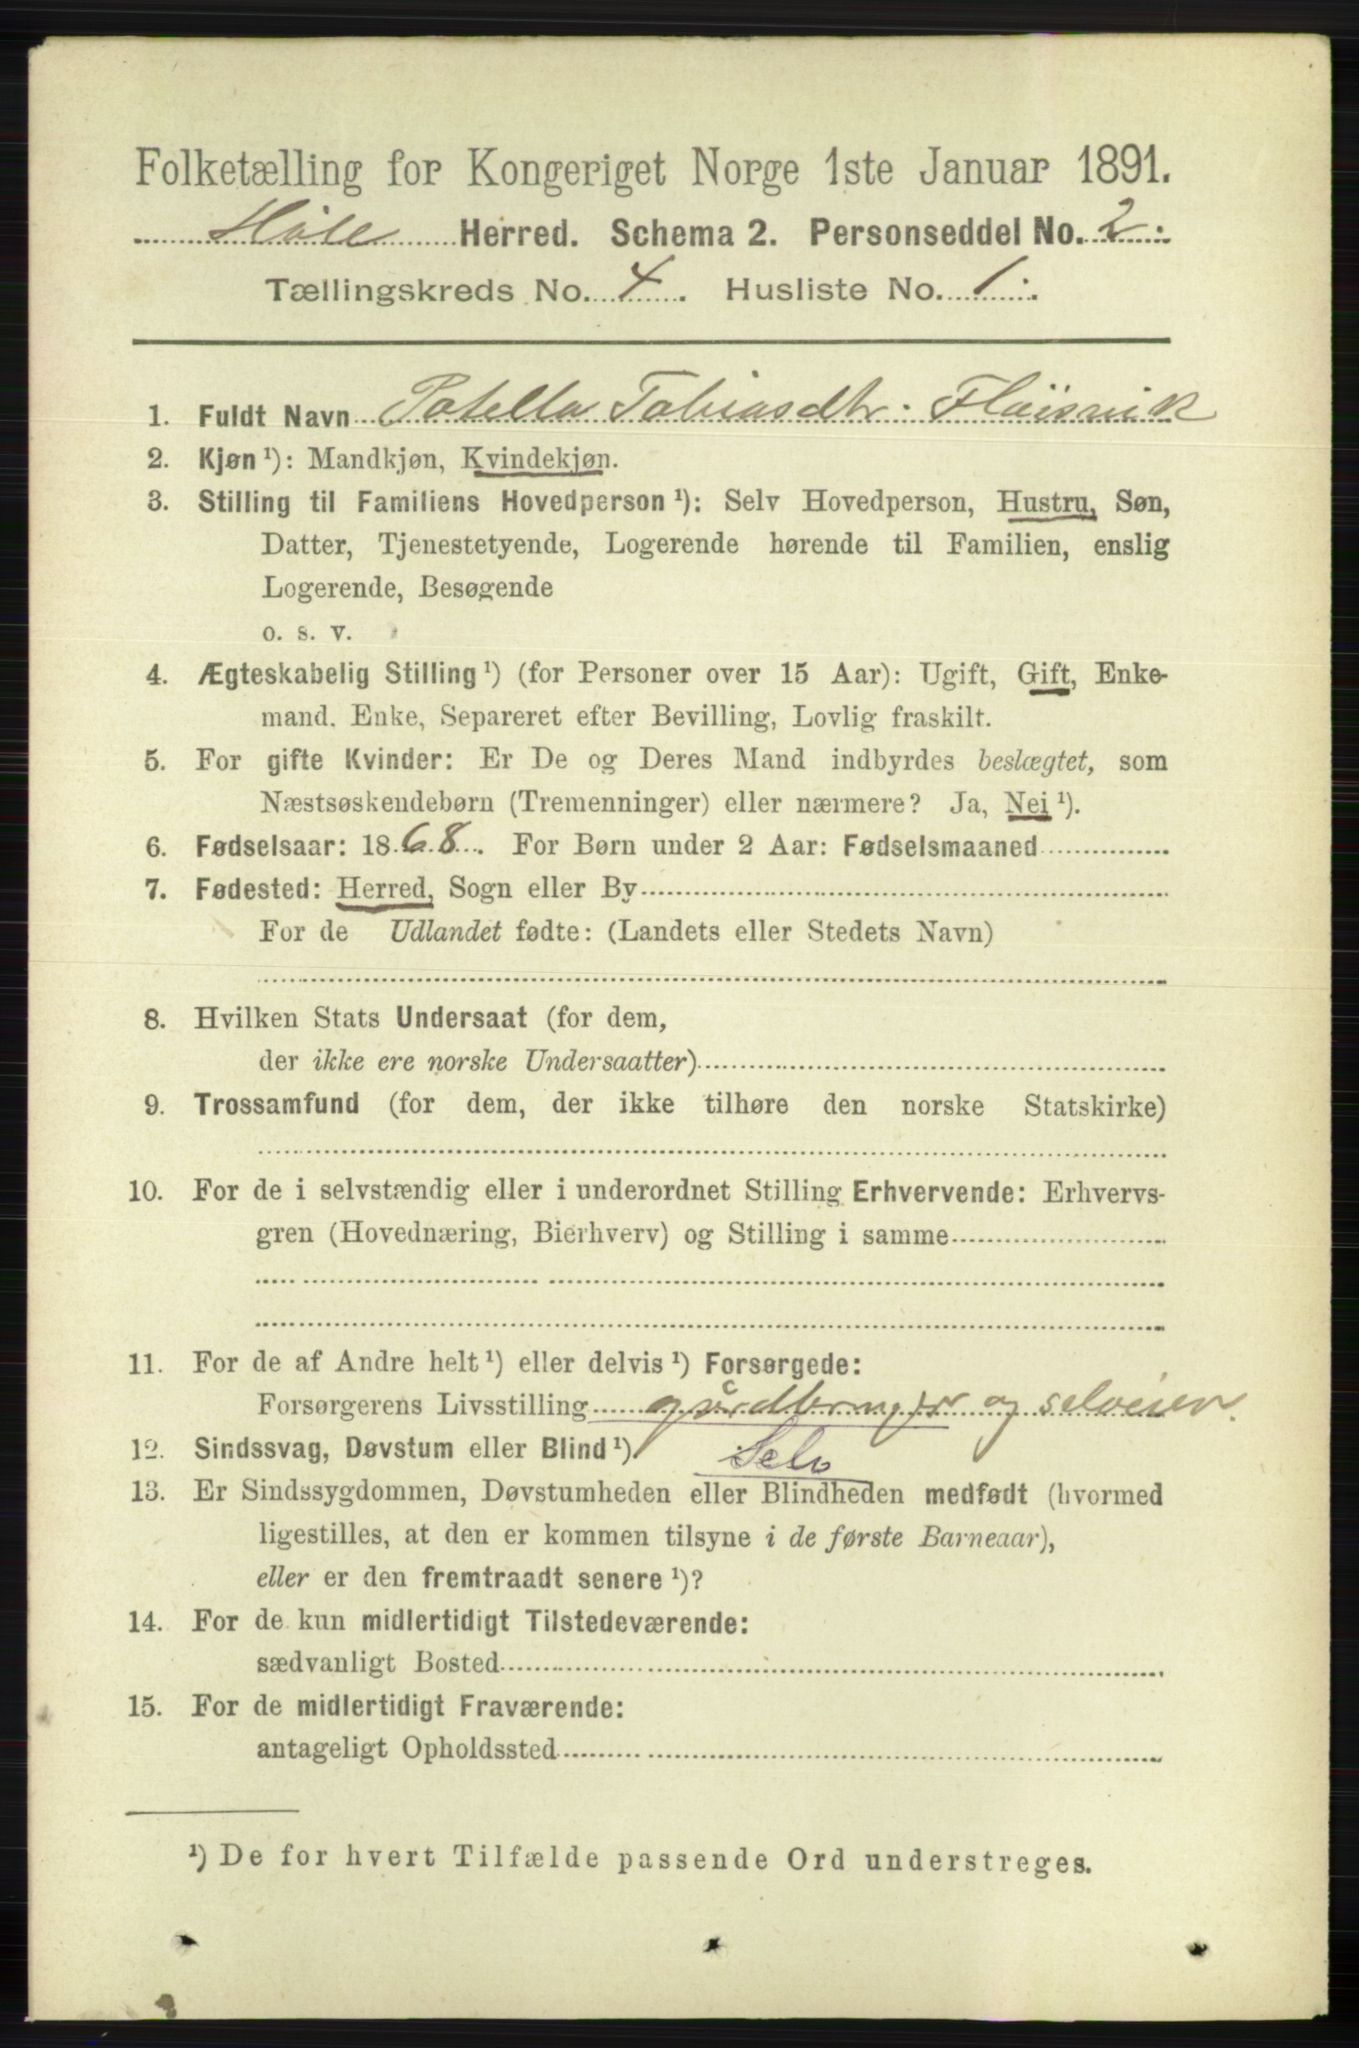 Folketælling for Kongeriget Norge 1ste Januar 1891.
Høle Herred. Schema 2. Personseddel No. 2.
Tællingskreds No. 4. Husliste No. 1.
1. Fuldt Navn Patella Tobiasdtr. Fløisvik
2. Kjøn ¹): Mandkjøn, Kvindekjøn.
3. Stilling til Familiens Hovedperson ¹): Selv Hovedperson, Hustru, Søn,
Datter, Tjenestetyende, Logerende hørende til Familien, enslig
Logerende, Besøgende
o. s. v.
4. Ægteskabelig Stilling ¹) (for Personer over 15 Aar): Ugift, Gift, Enke-
mand, Enke, Separeret efter Bevilling, Lovlig fraskilt.
5. For gifte Kvinder: Er De og Deres Mand indbyrdes beslægtet, som
Næstsøskendebørn (Tremenninger) eller nærmere? Ja, Nei ¹).
6. Fødselsaar: 1868. For Børn under 2 Aar: Fødselsmaaned
7. Fødested: Herred, Sogn eller By
For de Udlandet fødte: (Landets eller Stedets Navn)
8. Hvilken Stats Undersaat (for dem,
der ikke ere norske Undersaatter)
9. Trossamfund (for dem, der ikke tilhøre den norske Statskirke)
10. For de i selvstændig eller i underordnet Stilling Erhvervende: Erhvervs-
gren (Hovednæring, Bierhverv) og Stilling i samme
11. For de af Andre helt ¹) eller delvis ¹) Forsørgede:
Forsørgerens Livsstilling gårdbruger og selveier.
12. Sindssvag, Døvstum eller Blind ¹). Selv
13. Er Sindssygdommen, Døvstumheden eller Blindheden medfødt (hvormed
ligestilles, at den er kommen tilsyne i de første Barneaar),
eller er den fremtraadt senere ¹)?
14. For de kun midlertidigt Tilstedeværende:
sædvanligt Bosted
15. For de midlertidigt Fraværende:
antageligt Opholdssted
¹) De for hvert Tilfælde passende Ord understreges.